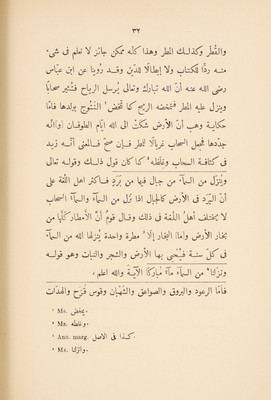 ٣٢
والقُطر وكذلك المطر وهذا كلّه ممكن جائز لا نعلم فى شىء
منه ردًّا للكتاب ولا إبطالًا للدين وقد رُوينا عن ابن عبّاس
رضى الله عنه أنّ الله تبارك وتعالى يُرسل الرياح فتُثير سحابًا
وينزل عليه المطر فتمخضه الريح كما تمخض¹ النتوج بولدها فامّا
حكاية وهب أنّ الأرض شكَتْ الى الله ايّام الطوفان لأنّه
خدّدها فجعل السحاب غربالًا للمطر فإن صحّ فالمعنى أنّه زيد
فى كثافة السحاب وغِلَظه² كما كان قبل ذلك وقوله تعالى
وينزل من السمآء من جبال فيها من بَرَدٍ فاكثر اهل اللغة على
أنّ البَرَد فى الأرض كالجبال اذا نزل من السمآء والسمآء السحاب
لا يختلف أهل اللُغة فى ذلك وقال قومٌ أنّ الأمطار كلّها من
بخار الأرض وإمّا البخار إلّا³ مطرة واحدة يُنزلها الله من السمآء
فى كلّ سنة فيُحْيى بها الأرض والشجر والنبات وهو قوله
ونزلنا⁴ من السمآء مآء مباركًا الآيةَ والله اعلم،
فأمّا الرعود والبروق والصواعق والشُهْبان وقوس قُزَح والهَدّات
¹ Ms. يمخض.
² Ms. وغلطه.
³ Ann. marg. كـذا فى الاصل.
⁴ Ms. وانزلنا.